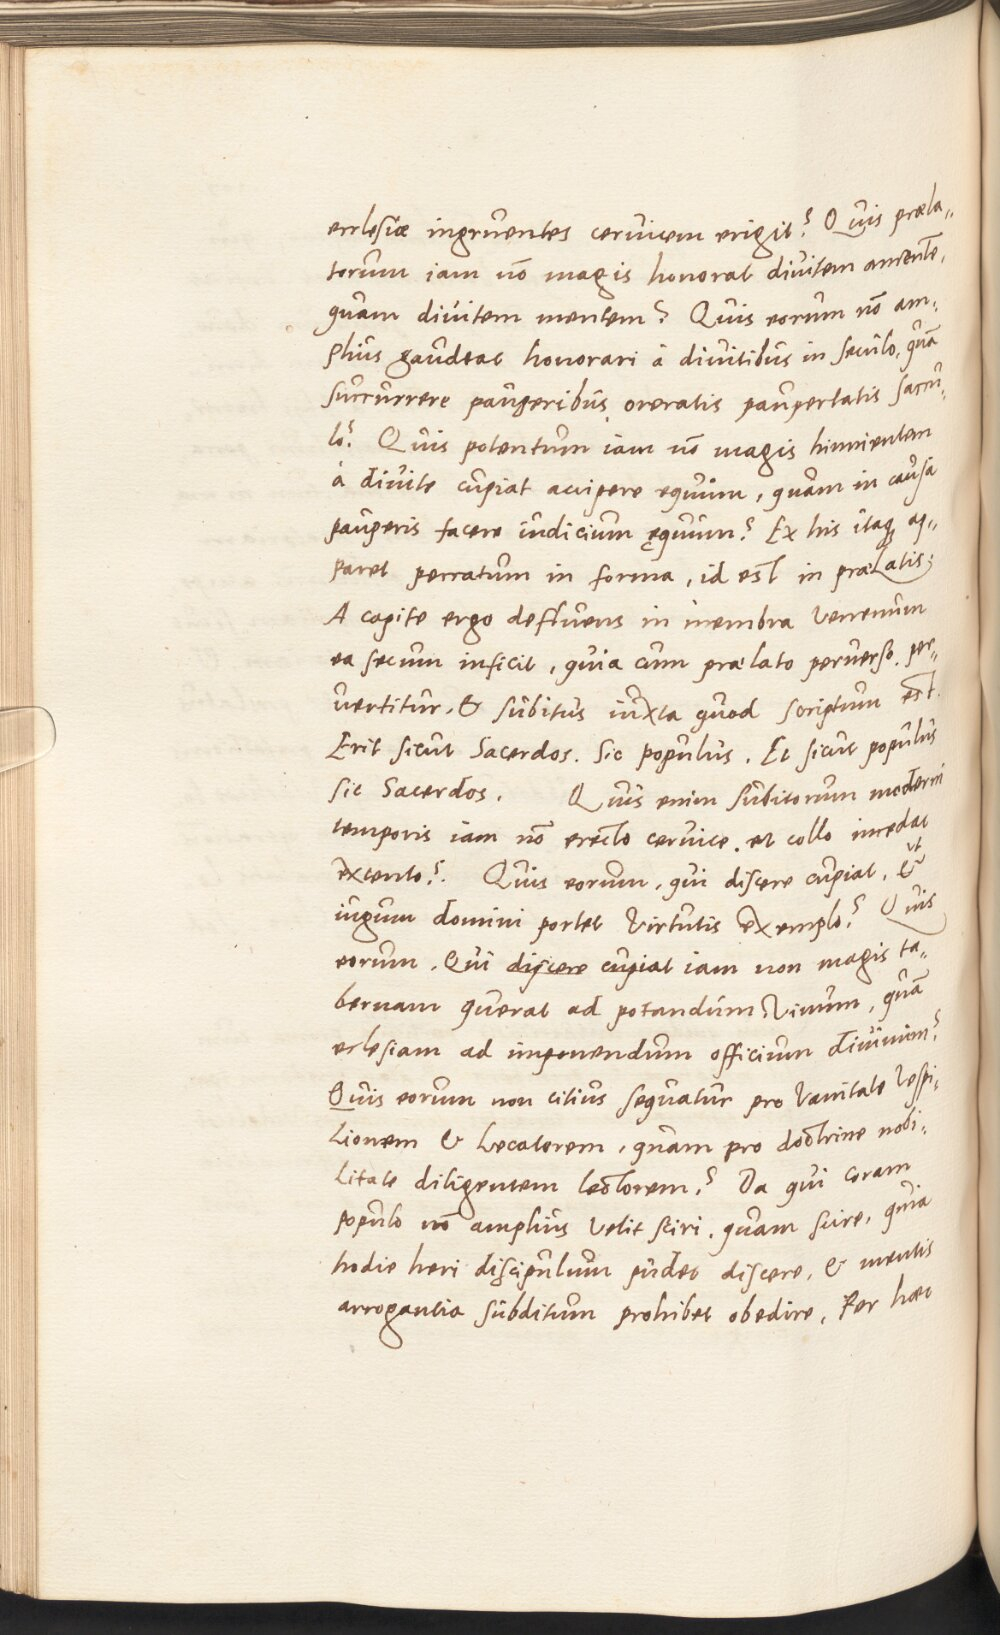 ecclesiæ ingruentes ceruicem erigit? Quis præla„
torum iam nō magis honorat diuitem amentē,
quam diuitem mentem? Quis eorum nō am„
plius gaudeat honorari à diuitibus in seculo, quā
succurrere pauperibus oneratis paupertatis saccu„
lo? Quis potentum iam nō magis hinnientem
à diuite cupiat accipere equum, quam in causa
pauperis facere iudicium ęquum? Ex his itaq ap„
paret peccatum in forma, id est in prælatis;
A capite ergo defluens in membra venenum
ea secum inficit, quia cum prælato peruerso per„
uertitur, & subitus iuxta quod scriptum est.
Erit sicut Sacerdos. Sic populus. Et sicut populus
sic Sacerdos. Quis enim subitorum moderni
temporis iam nō erecto ceruice. et collo incedat
extento?. Quis eorum, qui discere cupiat, & vt
iugum domini portet virtutis exemplo? Quis
eorum, qui discere cupiat iam non magis ta„
bernam querat ad potandum vinum, quā
eclesiam ad imponendum officium diuinum?
Quis eorum non citius sequatur pro vanitate vespi„
lionem & Lecatorem, quam pro doctrine nobi„
litate diligentem lectorem? Da qui coram
populo nō amplius velit sciri, quam scire, quia
hodie heri discipulum pudet discere, & mentis
arrogantia subditum prohibet obedire, Per hæc